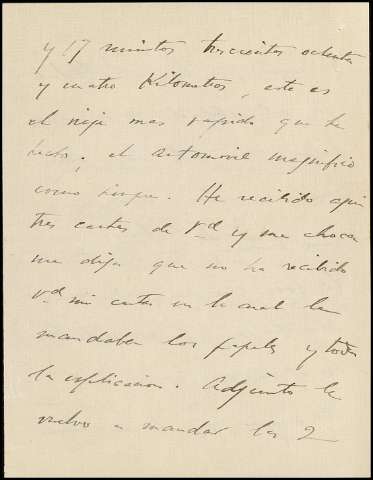 y 17 minutos trescientos ochenta
y cuatro Kilometros, este es
el viaje mas rapido que he
hecho, el automovil magnifico
como siempre. He recibido aqui
tres cartas de Vd y me choca
me diga que no ha recibido
Vd mi carta en la cual le
mandaba los papeles y toda
la esplicacion. Adjunto le
vuelvo a mandar los 2